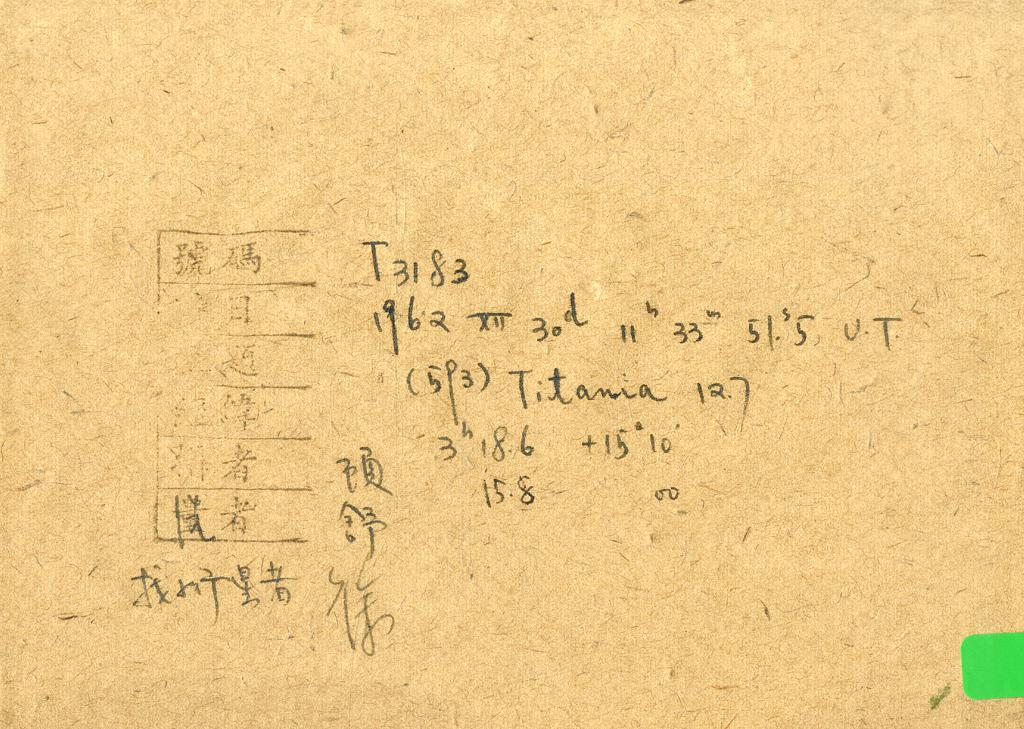 號碼 T3183
日 1962 XII 30ᵈ 11ʰ 33ᵐ 51.ˢ5 U.T.
(593) Titania 12.7
3ʰ 18.6 +15° 10'
者 顧
15.8 00
者 舒
找行星者